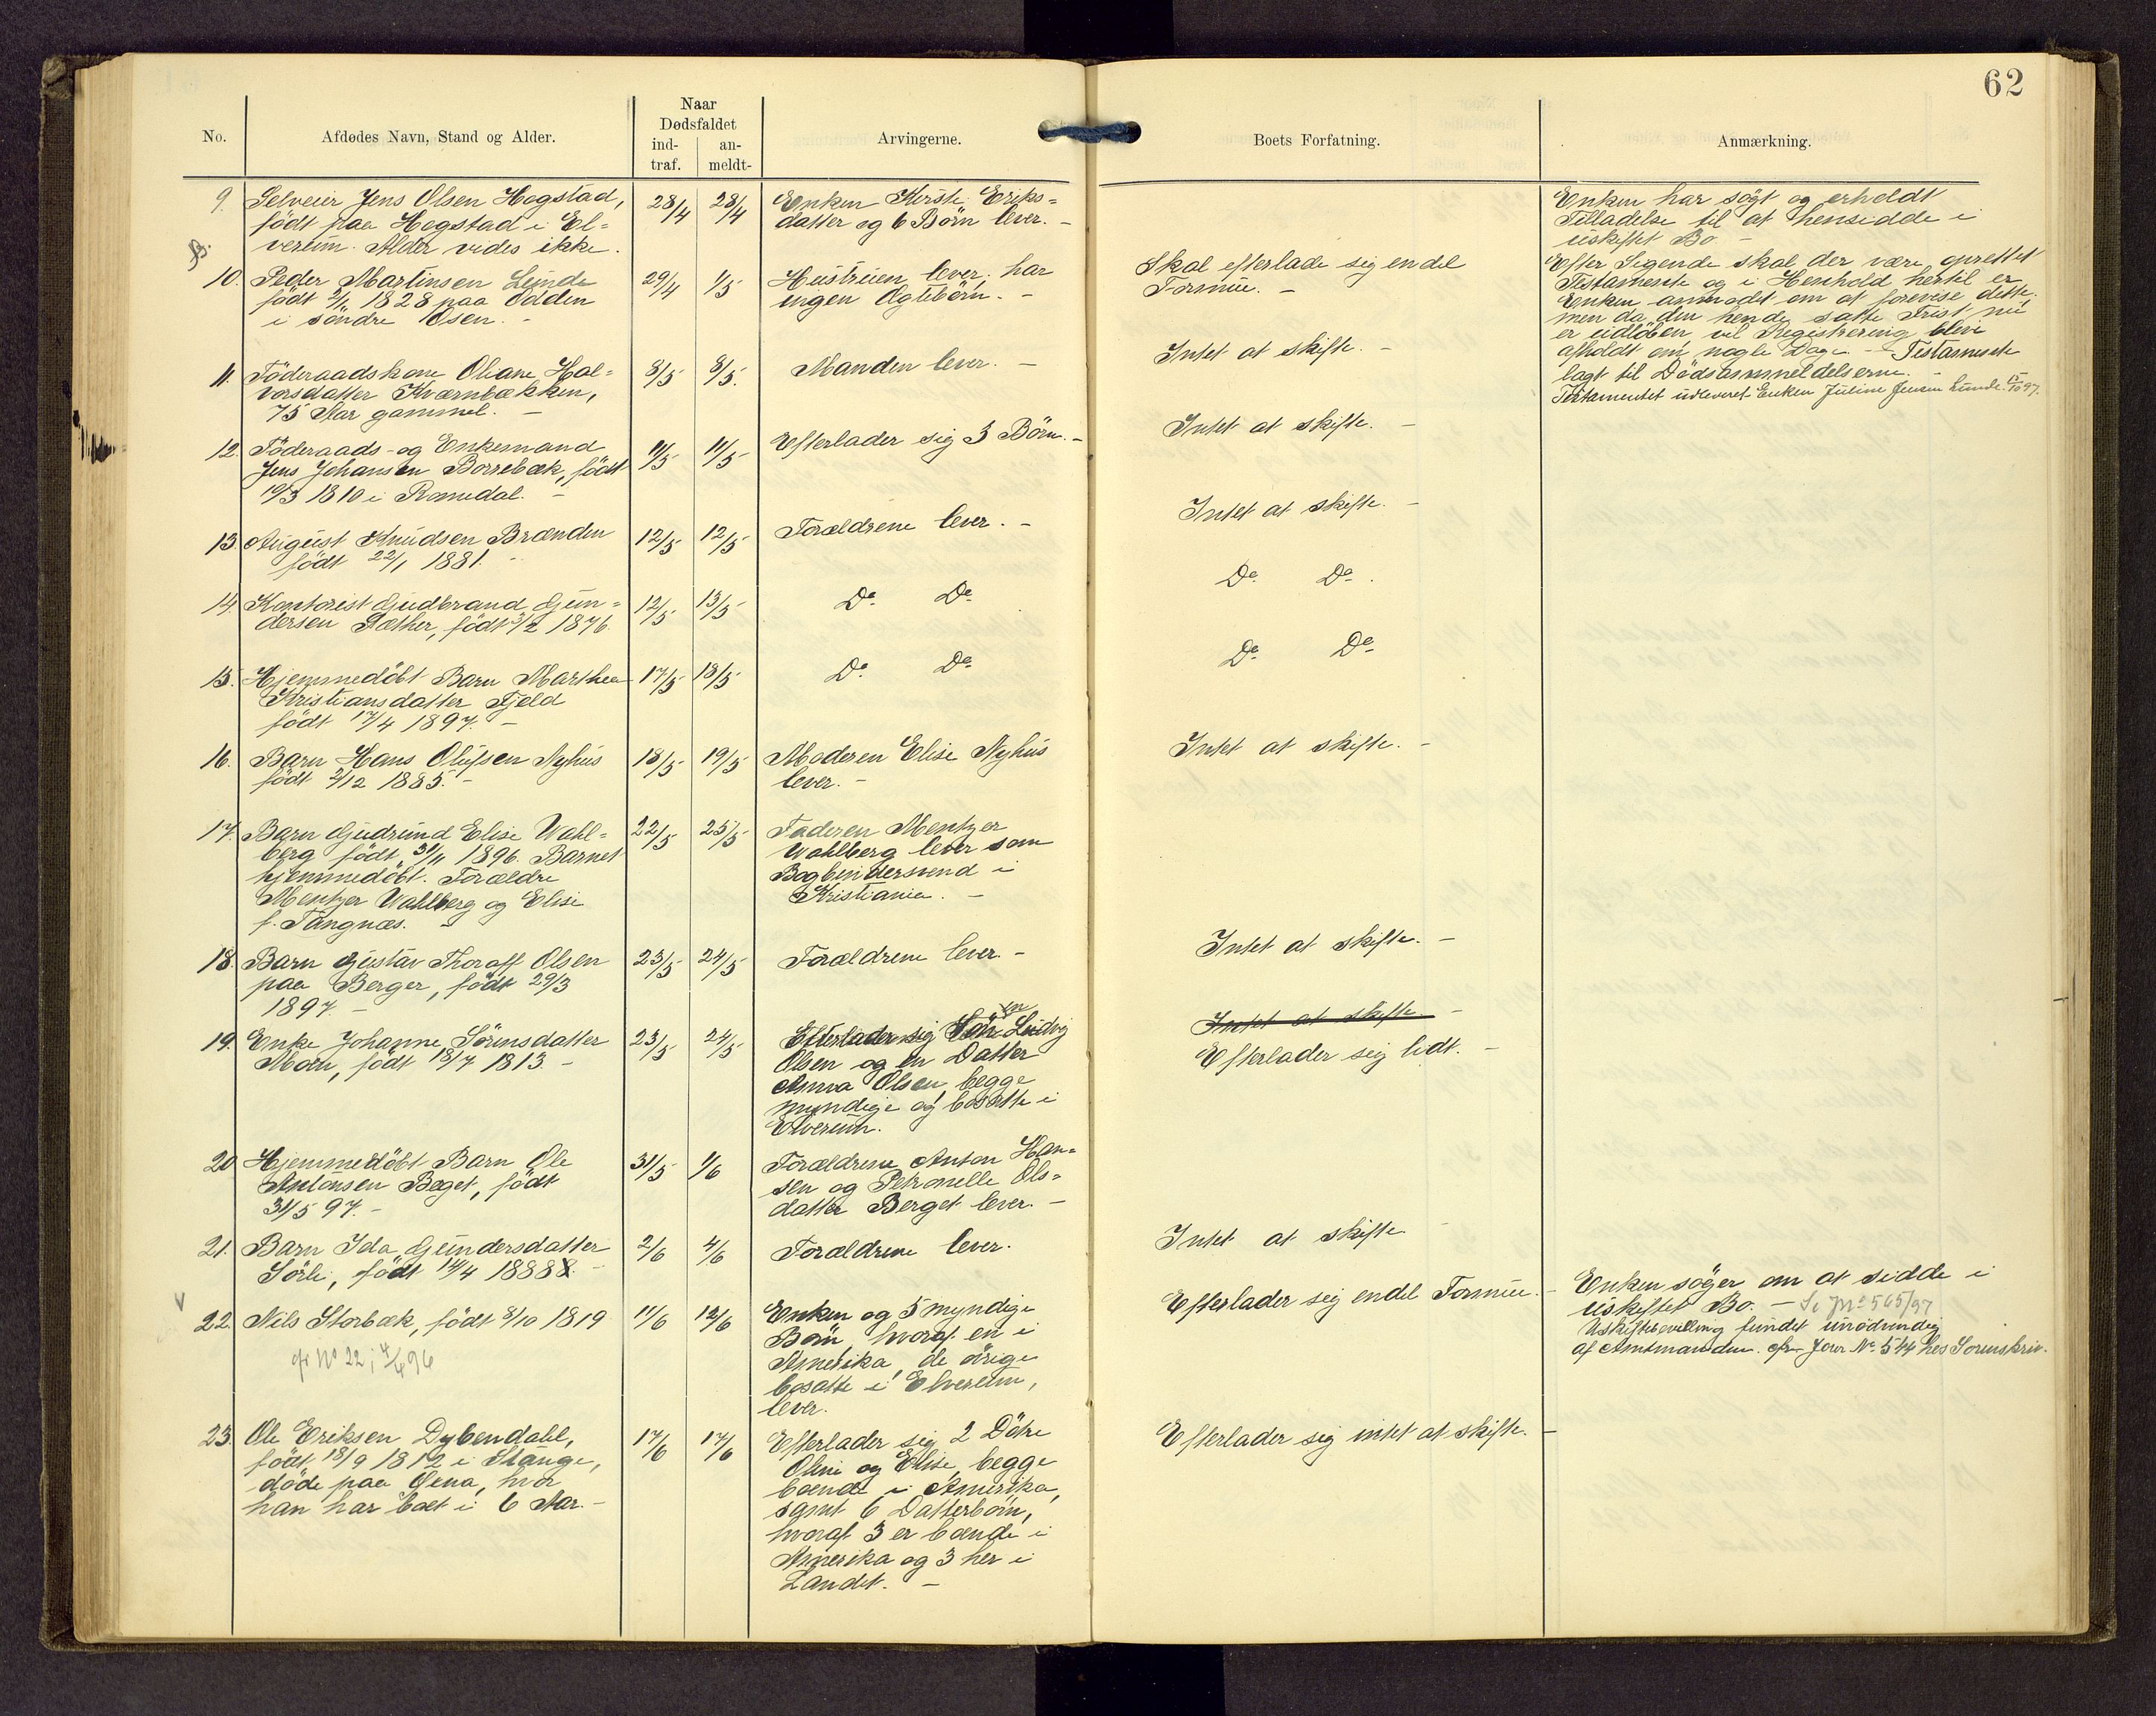 62
No.
Afdødes Navn, Stand og Alder.
Naar
Dødsfaldet
ind-
traf.
an-
meldt-
Arvingerne.
Boets Forfatning.
Anmærkning.
9. Selveier Jens Olsen Hagstad,
født paa Hagstad i El=
verum. Alder vides ikke.
28/4 28/4
Enken Kersti Eriks=
datter og 6 Børn lever. -
Enken har søgt og erholdt
Tilladelse til at hensidde i
uskiftet Bo. -
10. Peder Martinsen Lunde
født 2/1 1828 paa Odden
i søndre Osen. -
29/4 1/5
Hustruen lever, har
ingen Ægtebørn. -
Skal efterlade sig endel
Formue. -
Efter Sigende skal der være oprettet
Testamente og i Henhold hertil er
Enken anmodet om at forevise dette,
men da den hende satte Frist nu
er udløben vil Registrering blive
afholdt om nogle Dage. - Testamente
lagt til Dødsanmeldelserne. -
Testamentet udleveret Enken Juline Jensen Lunde. 15/10 97.
11. Føderaadskone Oliane Hal=
vorsdatter Kværnbækken,
75 Aar gammel. -
8/5 8/5.
Manden lever. -
Intet at skifte. -
12. Føderaads- og Enkemand
Jens Johansen Borrebæk, født
19/3 1810 i Romedal. -
11/5 11/5
Efterlader sig 3 Børn. -
Intet at skifte. -
13. August Knudsen Brænden
født 22/1 1881. -
12/5 12/5
Forældrene lever. -
Intet at skifte. -
14. Kontorist Gudbrand Gun=
dersen Sæther, født 3/2 1876.
12/5 13/5
Do. Do.
Do. Do.
15. Hjemmedøbt Barn Marthea
Kristiansdatter Fjeld
født 17/4 1897. -
17/5 18/5
Do. Do.
Do. Do.
16. Barn Hans Olufsen Nyhus
født 2/12 1885. -
18/5 19/5
Moderen Elise Nyhus
lever. -
Intet at skifte. -
17. Barn Gudrund Elise Wahl=
berg født 31/11 1896. Barnet
hjemmedøbt. Forældre
Mentzer Wahlberg og Elise
f. Tangnæs. -
22/5 25/5
Faderen Mentzer
Wahlberg lever som
Bogbindersvend i
Kristiania. -
18. Barn Gustav Thoralf Olsen
paa Berger, født 29/3
1897. -
23/5 24/5
Forældrene lever. -
Intet at skifte. -
19. Enke Johanne Sørensdatter
Moen, født 18/7 1813. -
23/5 24/5
Efterlader sig Ludvig
Olsen og en Datter
Anna Olsen, begge
myndige og bosatte i
Elverum.
Intet at skifte. -
Efterlader sig lidt. -
20. Hjemmedøbt Barn Ole
Antonsen Beget, født
31/5 97. -
31/5 1/6
Forældrene Anton Han=
sen og Petronelle Ols=
datter Berget lever. -
21. Barn Ida Gundersdatter
Sørli, født 14/4 1888. -
2/6 4/6
Forældrene lever.
Intet at skifte
22. Nils Storbæk, født 8/10 1819
cfr No 22 i 4/4 96
11/6 12/6
Enken og 5 myndige
Børn, hvoraf en i
Amerika, de øvrige
bosatte i Elverum,
lever.
Efterlader sig endel Formue. -
Enken søger om at sidde i
uskiftet Bo. - Se Jno 565/97
Uskiftebevilling fundet unødvendig
af Amtmanden. cfr. Jour No. 544 hos Sorenskriv.
23. Ole Eriksen Dybendahl,
født 18/9 1812 i Stange,
døde paa Øena, hvor
han har boet i 6 Aar. -
17/6 17/6
Efterlader sig 2 Døtre
Oline og Elise, begge
boende i Amerika,
samt 6 Datterbørn,
hvoraf 3 er boende i
Amerika og 3 her i
Landet. -
Efterlader sig intet at skifte. -